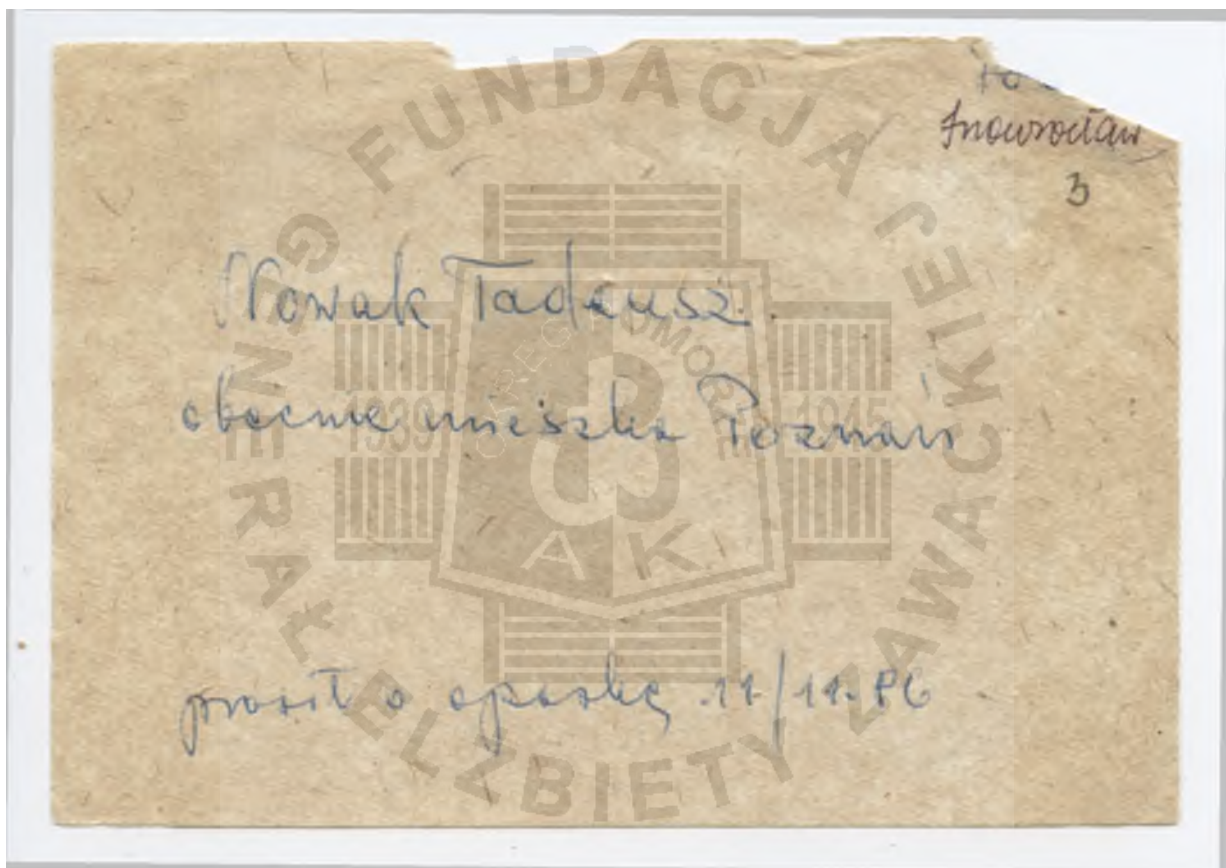 Inowrocław
3
Nowak Tadeusz
obecnie mieszka Poznań
prosił o opaskę 11/11.86
FUNDACJA GENERAŁ ELŻBIETY ZAWACKIEJ
OKRĘG POMORZE
1939
1945
AK